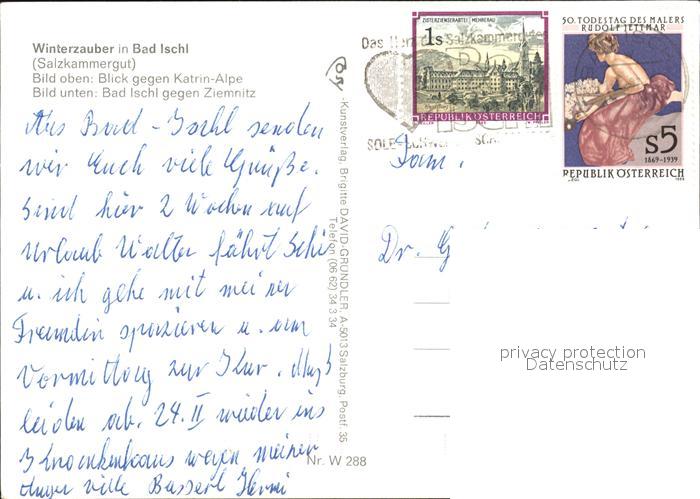 Winterzauber in Bad Ischl
(Salzkammergut)
Bild oben: Blick gegen Katrin-Alpe
Bild unten: Bad Ischl gegen Ziemnitz
Aus Bad-Ischl senden
wir Euch viele Grüße.
Sind hier 2 Wochen auf
Urlaub Walter fährt Schi
u. ich gehe mit meiner
Freundin spazieren u. am
Vormittag zur Kur. Muß
leider ab. 24.II wieder ins
Krankenhaus wegen meiner
viele Busserl Hermi
Kunstverlag, Brigitte DAVID-GRÜNDLER, A-5013 Salzburg, Postf. 35
Telefon (06 62) 34 3 34
Nr. W 288
Das Herz des Salzkammergutes
BAD
ISCHL
SOLE-SCHWEFEL-SCH
ZISTERZIENSERABTEI MEHRERAU
1s
REPUBLIK ÖSTERREICH
50. TODESTAG DES MALERS
RUDOLF JETTMAR
s5
1869-1939
REPUBLIK ÖSTERREICH
Fam.
Dr. G
privacy protection
Datenschutz